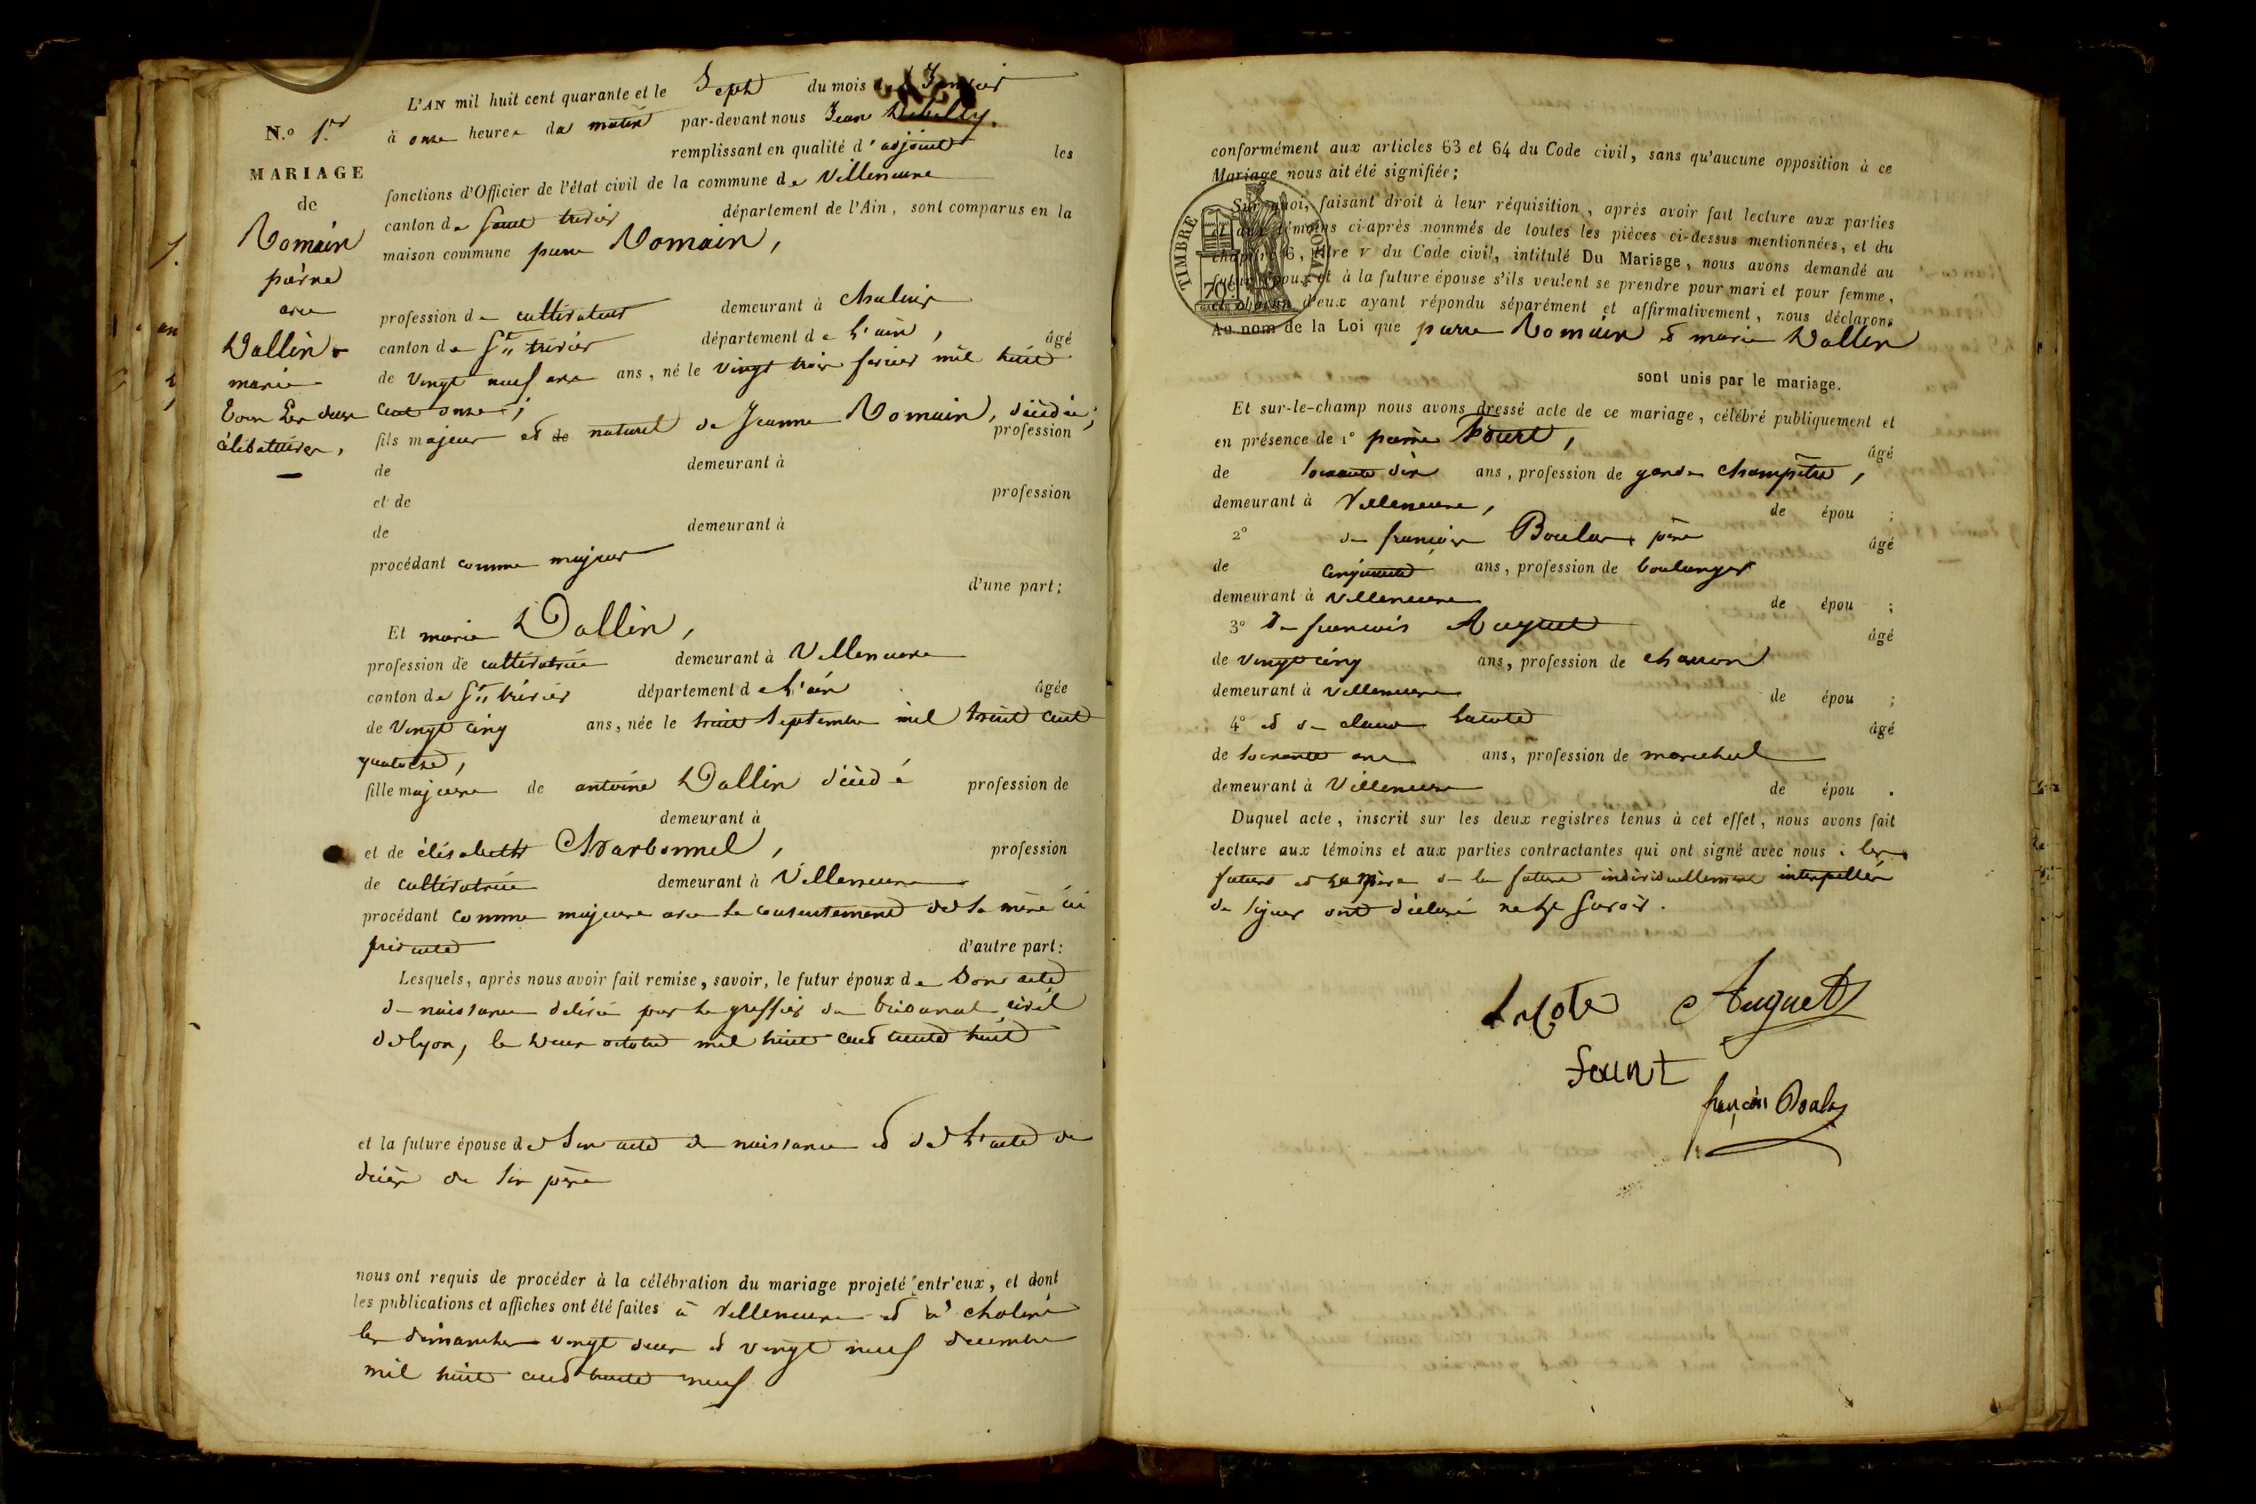 N.o 1.er
MARIAGE
de
Romain
pierre
avec
Dallin
marie
tous les deux
célibataires,
L'AN mil huit cent quarante et le Sept du mois de Janvier
à onze heures du matin par-devant nous Jean
remplissant en qualité d'adjoint les
fonctions d'Officier de l'état civil de la commune de Villeneuve
canton de Saint trivier département de l'Ain, sont comparus en la
maison commune pierre Romain,
profession de cultivateur demeurant à chaleins
canton de St trivier département de L'ain, âgé
de vingt neuf ans ans, né le vingt trois fevrier mil huit
cent onze;
fils majeur et de naturel de Jeanne Romain, décédée;
profession
de demeurant à
et de profession
de demeurant à
procédant comme majeur
d'une part;
Et marie Dallin,
profession de cultivatrice demeurant à Villeneuve
canton de St trivier département de L'ain âgée
de vingt cinq ans, née le huit Septembre mil huit cent
quatorze,
fille majeure de antoine Dallin décédé profession de
demeurant à
et de élisabeth Charbonnel, profession
de cultivatrice demeurant à Villeneuve
procédant comme majeure avec le consentement de sa mère ici
présente d'autre part:
Lesquels, après nous avoir fait remise, savoir, le futur époux de Son acte
de naissance délivré par le greffier du tribunal civil
de lyon, le deux octobre mil huit cent trente huit
et la future épouse de Son acte de naissance et de L'acte de
décès de Son père
nous ont requis de procéder à la célébration du mariage projeté entr'eux, et dont
les publications et affiches ont été faites à Villeneuve et à
les dimanches vingt deux et vingt neuf decembre
mil huit cent trente neuf
conformément aux articles 63 et 64 du Code civil, sans qu'aucune opposition à ce
Mariage nous ait été signifiée;
Sur quoi, faisant droit à leur réquisition, après avoir fait lecture aux parties
et aux témoins ci-après nommés de toutes les pièces ci-dessus mentionnées, et du
chapitre 6, titre V du Code civil, intitulé Du Mariage, nous avons demandé au
futur époux et à la future épouse s'ils veulent se prendre pour mari et pour femme,
et chacun d'eux ayant répondu séparément et affirmativement, nous déclarons
Au nom de la Loi que pierre Romain et marie Dallin
TIMBRE ROYAL
70c
sont unis par le mariage.
Et sur-le-champ nous avons dressé acte de ce mariage, célébré publiquement et
en présence de 1° pierre
âgé
de soixante dix ans, profession de garde champêtre,
demeurant à Villeneuve, de épou ;
2° de françois Boulas père âgé
de cinquante ans, profession de boulanger
demeurant à Villeneuve de épou ;
3° De francois Auguet âgé
de vingt cinq ans, profession de charron
demeurant à Villeneuve de épou ;
4° et de claude Lacote âgé
de soixante ans ans, profession de marechal
demeurant à Villeneuve de épou .
Duquel acte, inscrit sur les deux registres tenus à cet effet, nous avons fait
lecture aux témoins et aux parties contractantes qui ont signé avec nous; les
futurs et la mère de la future individuellement interpellés
de signer ont déclaré ne le Savoir.
Lacote Auguet
françois Boulas